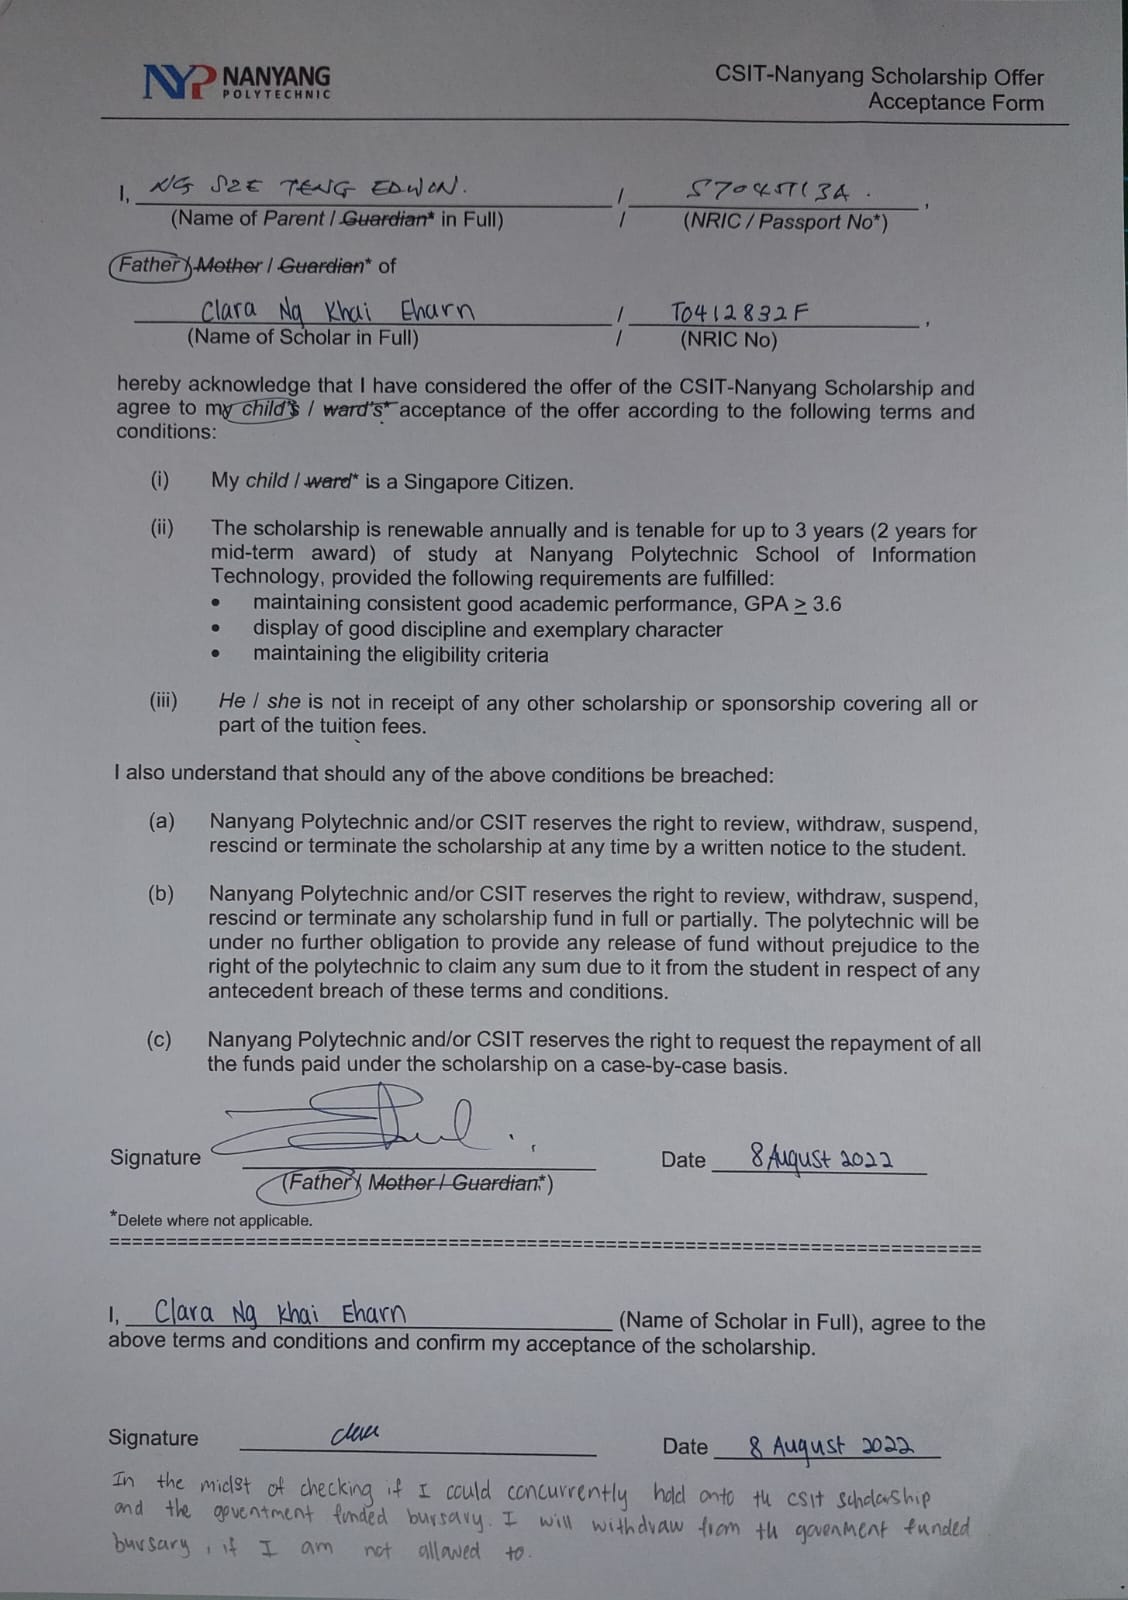 NYP NANYANG
POLYTECHNIC
CSIT-Nanyang Scholarship Offer
Acceptance Form
I, NG SZE TENG EDWIN. / (Name of Parent / Guardian* in Full)
/ (NRIC / Passport No*)
Father / Mother / Guardian* of
Clara Ng Khai Eharn / T0412832F ,
(Name of Scholar in Full) / (NRIC No)
hereby acknowledge that I have considered the offer of the CSIT-Nanyang Scholarship and
agree to my child's / ward's* acceptance of the offer according to the following terms and
conditions:
(i) My child / ward* is a Singapore Citizen.
(ii) The scholarship is renewable annually and is tenable for up to 3 years (2 years for
mid-term award) of study at Nanyang Polytechnic School of Information
Technology, provided the following requirements are fulfilled:
• maintaining consistent good academic performance, GPA ≥ 3.6
• display of good discipline and exemplary character
• maintaining the eligibility criteria
(iii) He / she is not in receipt of any other scholarship or sponsorship covering all or
part of the tuition fees.
I also understand that should any of the above conditions be breached:
(a) Nanyang Polytechnic and/or CSIT reserves the right to review, withdraw, suspend,
rescind or terminate the scholarship at any time by a written notice to the student.
(b) Nanyang Polytechnic and/or CSIT reserves the right to review, withdraw, suspend,
rescind or terminate any scholarship fund in full or partially. The polytechnic will be
under no further obligation to provide any release of fund without prejudice to the
right of the polytechnic to claim any sum due to it from the student in respect of any
antecedent breach of these terms and conditions.
(c) Nanyang Polytechnic and/or CSIT reserves the right to request the repayment of all
the funds paid under the scholarship on a case-by-case basis.
Signature Date 8 August 2022
(Father / Mother / Guardian*)
*Delete where not applicable.
I, Clara Ng Khai Eharn (Name of Scholar in Full), agree to the
above terms and conditions and confirm my acceptance of the scholarship.
Signature Date 8 August 2022
In the midst of checking if I could concurrently hold onto th CSIT scholarship
and the goventment funded bursary. I will withdraw from th govenment funded
bursary, if I am not allowed to.